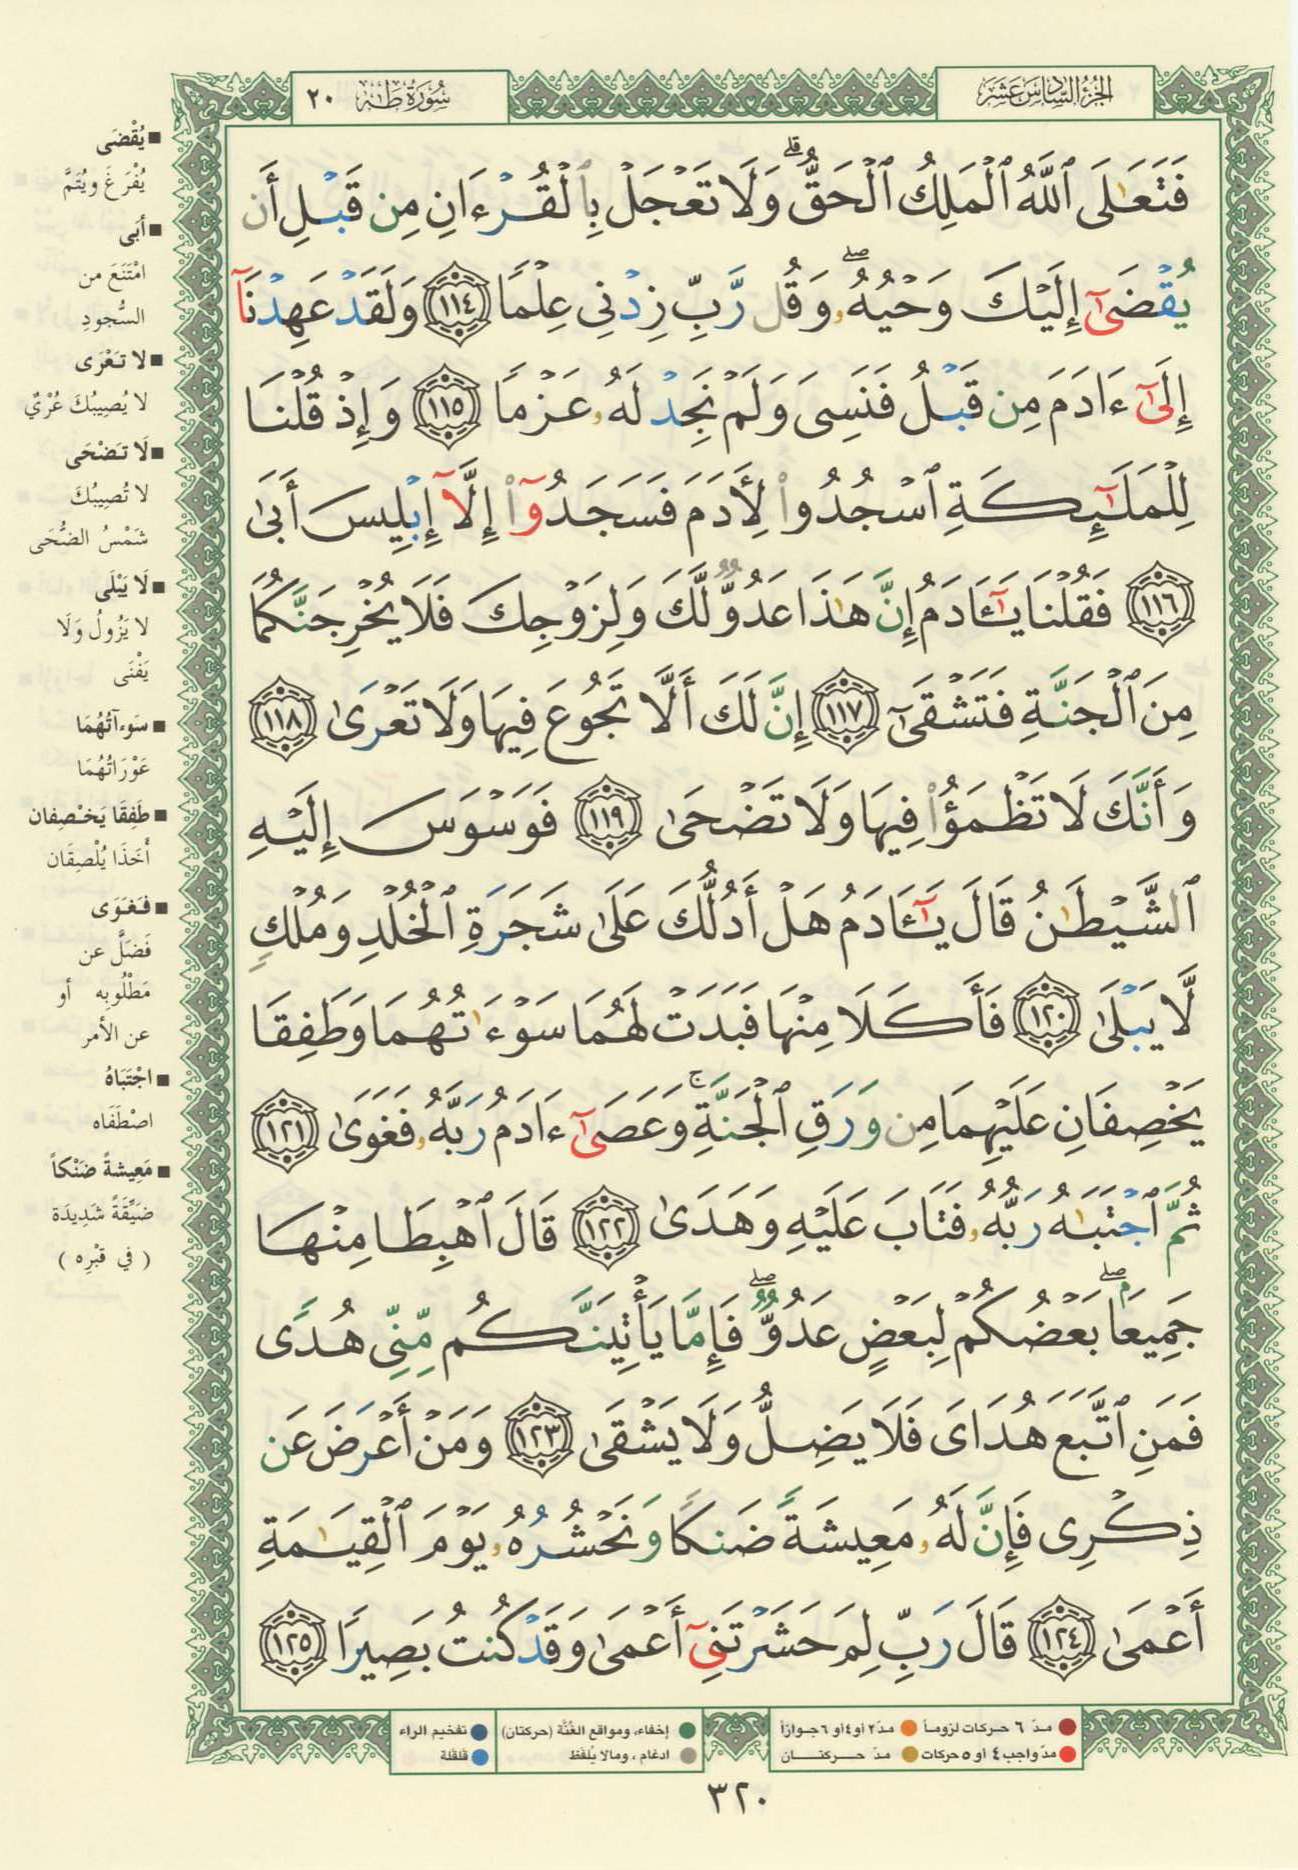 الجزء السادس عشر
سورة طه ٢٠
فَتَعَٰلَى ٱللَّهُ ٱلۡمَلِكُ ٱلۡحَقُّۗ وَلَا تَعۡجَلۡ بِٱلۡقُرۡءَانِ مِن قَبۡلِ أَن
يُقۡضَىٰٓ إِلَيۡكَ وَحۡيُهُۥۖ وَقُل رَّبِّ زِدۡنِي عِلۡمٗا ١١٤ وَلَقَدۡ عَهِدۡنَآ
إِلَىٰٓ ءَادَمَ مِن قَبۡلُ فَنَسِيَ وَلَمۡ نَجِدۡ لَهُۥ عَزۡمٗا ١١٥ وَإِذۡ قُلۡنَا
لِلۡمَلَٰٓئِكَةِ ٱسۡجُدُواْ لِأٓدَمَ فَسَجَدُوٓاْ إِلَّآ إِبۡلِيسَ أَبَىٰ
١١٦ فَقُلۡنَا يَٰٓـَٔادَمُ إِنَّ هَٰذَا عَدُوّٞ لَّكَ وَلِزَوۡجِكَ فَلَا يُخۡرِجَنَّكُمَا
مِنَ ٱلۡجَنَّةِ فَتَشۡقَىٰٓ ١١٧ إِنَّ لَكَ أَلَّا تَجُوعَ فِيهَا وَلَا تَعۡرَىٰ ١١٨
وَأَنَّكَ لَا تَظۡمَؤُاْ فِيهَا وَلَا تَضۡحَىٰ ١١٩ فَوَسۡوَسَ إِلَيۡهِ
ٱلشَّيۡطَٰنُ قَالَ يَٰٓـَٔادَمُ هَلۡ أَدُلُّكَ عَلَىٰ شَجَرَةِ ٱلۡخُلۡدِ وَمُلۡكٖ
لَّا يَبۡلَىٰ ١٢٠ فَأَكَلَا مِنۡهَا فَبَدَتۡ لَهُمَا سَوۡءَٰتُهُمَا وَطَفِقَا
يَخۡصِفَانِ عَلَيۡهِمَا مِن وَرَقِ ٱلۡجَنَّةِۚ وَعَصَىٰٓ ءَادَمُ رَبَّهُۥ فَغَوَىٰ ١٢١
ثُمَّ ٱجۡتَبَٰهُ رَبُّهُۥ فَتَابَ عَلَيۡهِ وَهَدَىٰ ١٢٢ قَالَ ٱهۡبِطَا مِنۡهَا
جَمِيعَۢاۖ بَعۡضُكُمۡ لِبَعۡضٍ عَدُوّٞۖ فَإِمَّا يَأۡتِيَنَّكُم مِّنِّي هُدٗى
فَمَنِ ٱتَّبَعَ هُدَايَ فَلَا يَضِلُّ وَلَا يَشۡقَىٰ ١٢٣ وَمَنۡ أَعۡرَضَ عَن
ذِكۡرِي فَإِنَّ لَهُۥ مَعِيشَةٗ ضَنكٗا وَنَحۡشُرُهُۥ يَوۡمَ ٱلۡقِيَٰمَةِ
أَعۡمَىٰ ١٢٤ قَالَ رَبِّ لِمَ حَشَرۡتَنِيٓ أَعۡمَىٰ وَقَدۡ كُنتُ بَصِيرٗا ١٢٥
■ يُقْضَى
يُفْرَغَ ويُتَمَّ
■ أبَى
امْتَنَعَ من
السُّجودِ
■ لا تَعْرَى
لا يُصِيبُكَ عُرْيٌ
■ لَا تَضْحَى
لا تُصِيبُكَ
شَمْسُ الضُّحَى
■ لَا يَبْلَى
لا يَزُولُ وَلَا
يَفْنَى
■ سَوءآتُهُمَا
عَوْرَاتُهُمَا
■ طَفِقَا يَخْصِفان
أخَذَا يُلْصِقَان
■ فَغَوَى
فَضَلَّ عن
مَطْلُوبِه أو
عن الأمر
■ اجْتَبَاهُ
اصْطَفَاه
■ مَعِيشةً ضَنْكاً
ضيِّقَةً شَدِيدَة
( في قبْرِه )
مدّ ٦ حركات لزوماً مدّ ٢ أو ٤ أو ٦ جوازاً
مدّ واجب ٤ أو ٥ حركات مدّ حركتـــان
إخفاء، ومواقع الغُنَّة (حركتان) تفخيم الراء
ادغام ، ومالا يُلفَظ قلقلة
٣٢٠